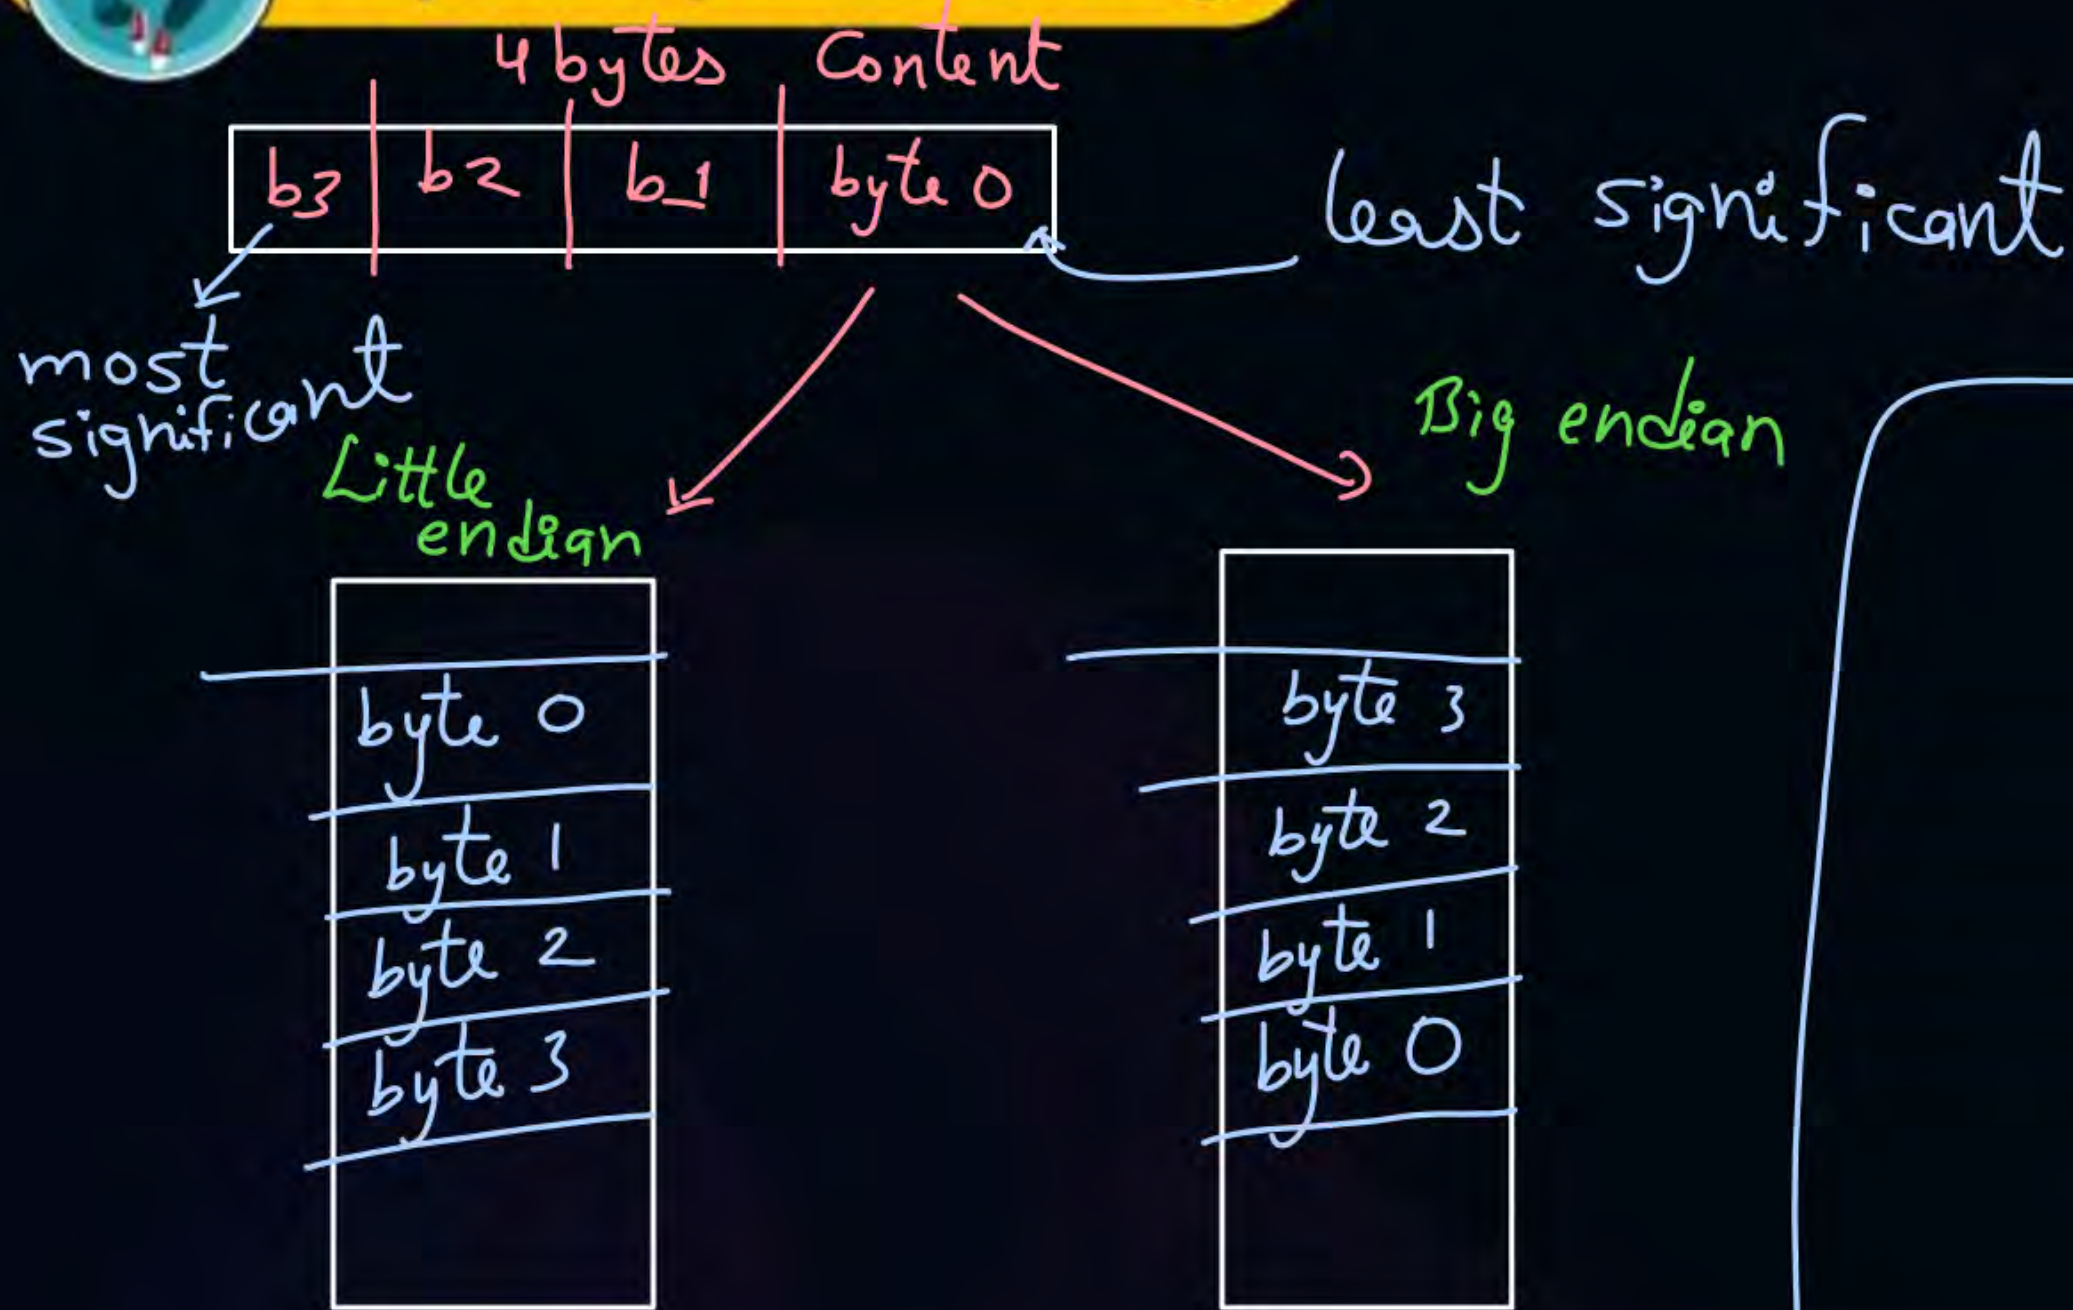 4 bytes Content
b3 b2 b1 byte 0
least significant
most
significant
Little
endian
Big endian
byte 0
byte 1
byte 2
byte 3
byte 3
byte 2
byte 1
byte 0